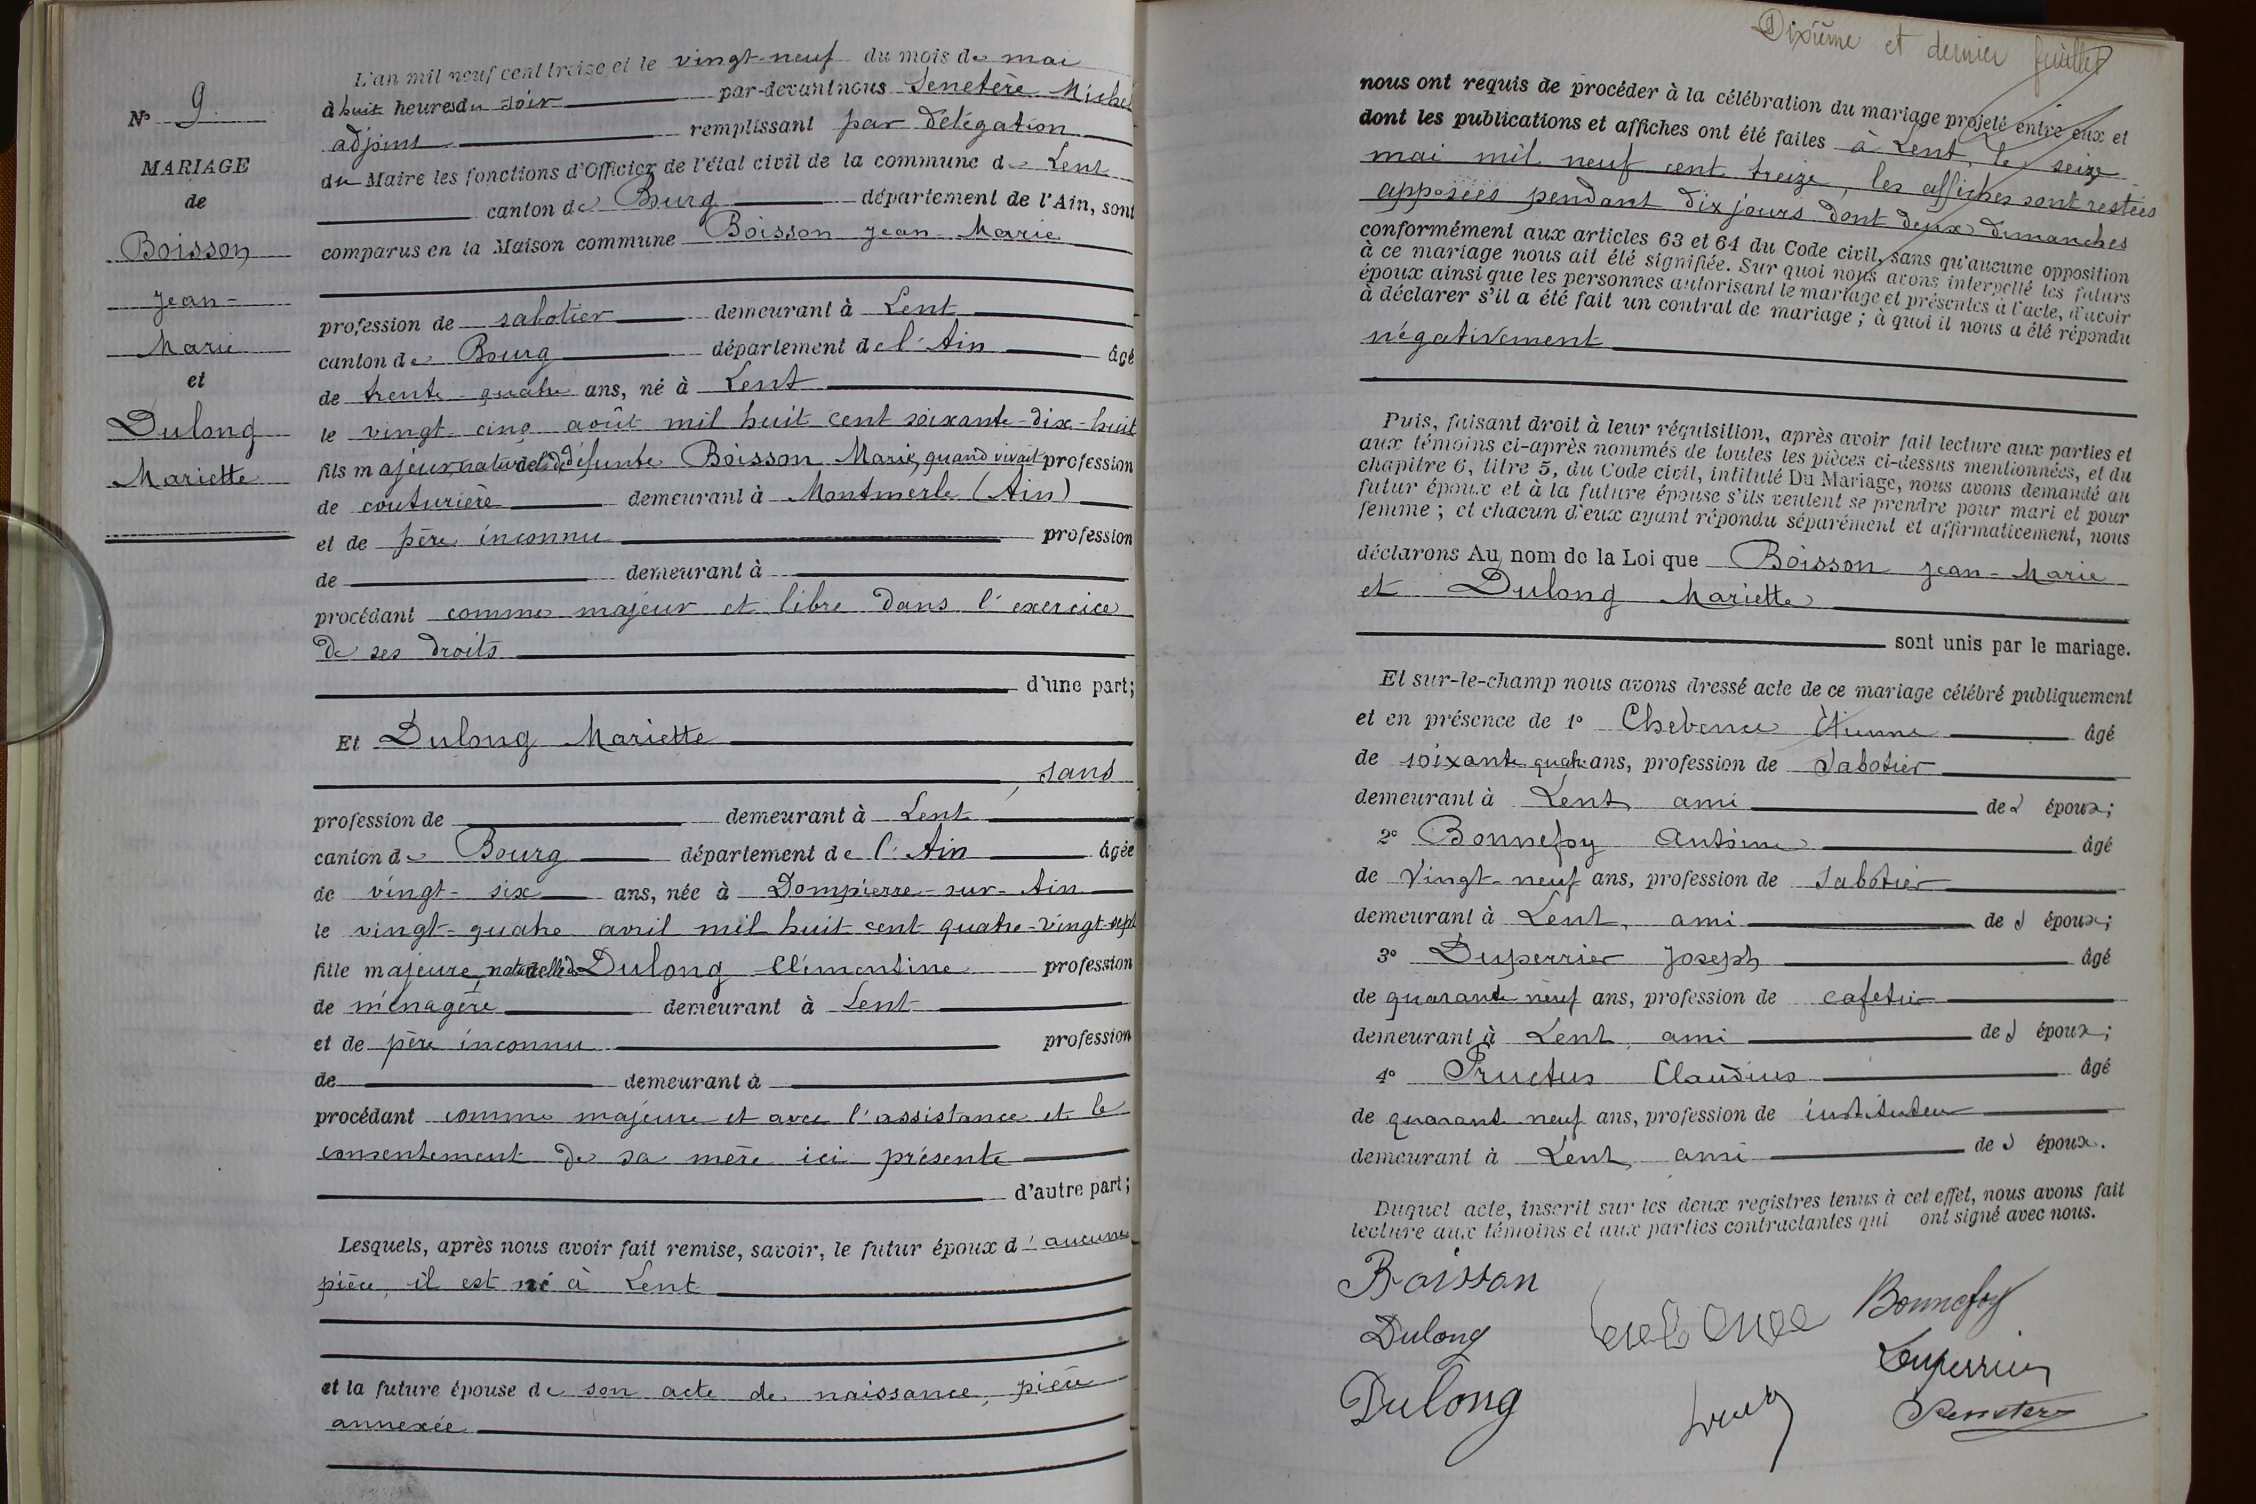 N° 9
MARIAGE
de
Boisson
Jean-
Marie
et
Dulong
Mariette
L'an mil neuf cent treize et le vingt-neuf du mois de mai
à huit heures du soir par-devant nous Senetère Michel
adjoint remplissant par délégation
du Maire les fonctions d'Officier de l'état civil de la commune de Lent
canton de Bourg département de l'Ain, sont
comparus en la Maison commune Boisson Jean-Marie
profession de sabotier demeurant à Lent
canton de Bourg département de l'Ain âgé
de trente-quatre ans, né à Lent
le vingt-cinq août mil huit cent soixante-dix-huit
fils majeur, naturel de défunte Boisson Marie, quand vivait profession
de couturière demeurant à Montmerle (Ain)
et de père inconnu profession
de demeurant à
procédant comme majeur et libre dans l'exercice
de ses droits
d'une part;
Et Dulong Mariette
, sans
profession de demeurant à Lent
canton de Bourg département de l'Ain âgée
de vingt-six ans, née à Dompierre-sur-Ain
le vingt-quatre avril mil huit cent quatre-vingt-sept
fille majeure, naturelle de Dulong Clémentine profession
de ménagère demeurant à Lent
et de père inconnu profession
de demeurant à
procédant comme majeure et avec l'assistance et le
consentement de sa mère ici présente
d'autre part;
Lesquels, après nous avoir fait remise, savoir, le futur époux d'aucune
pièce, il est né à Lent
et la future épouse de son acte de naissance, pièce
annexée
Dixième et dernier feuillet
nous ont requis de procéder à la célébration du mariage projeté entre eux et
dont les publications et affiches ont été faites à Lent, le seize
mai mil neuf cent treize, les affiches sont restées
apposées pendant dix jours dont deux dimanches
conformément aux articles 63 et 64 du Code civil, sans qu'aucune opposition
à ce mariage nous ait été signifiée. Sur quoi nous avons interpellé les futurs
époux ainsi que les personnes autorisant le mariage et présentes à l'acte, d'avoir
à déclarer s'il a été fait un contrat de mariage; à quoi il nous a été répondu
négativement
Puis, faisant droit à leur réquisition, après avoir fait lecture aux parties et
aux témoins ci-après nommés de toutes les pièces ci-dessus mentionnées, et du
chapitre 6, titre 5, du Code civil, intitulé Du Mariage, nous avons demandé au
futur époux et à la future épouse s'ils veulent se prendre pour mari et pour
femme; et chacun d'eux ayant répondu séparément et affirmativement, nous
déclarons Au nom de la Loi que Boisson Jean-Marie
et Dulong Mariette
sont unis par le mariage.
Et sur-le-champ nous avons dressé acte de ce mariage célébré publiquement
et en présence de 1° Chevence Étienne âgé
de soixante quatre ans, profession de sabotier
demeurant à Lent ami des époux;
2° Bonnefoy Antoine âgé
de vingt-neuf ans, profession de sabotier
demeurant à Lent, ami des époux;
3° Duperrier Joseph âgé
de quarante neuf ans, profession de cafetier
demeurant à Lent, ami des époux;
4° Fructus Claudius âgé
de quarante neuf ans, profession de instituteur
demeurant à Lent, ami des époux.
Duquel acte, inscrit sur les deux registres tenus à cet effet, nous avons fait
lecture aux témoins et aux parties contractantes qui ont signé avec nous.
Boisson
Bonnefoy
Dulong
Duperrier
Dulong
Senetère